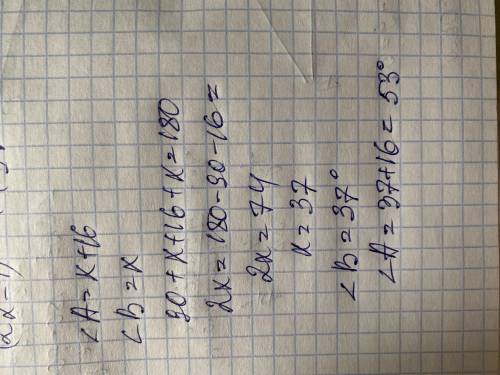 ∠A = x+16
∠B = x
90+x+16+x=180
2x=180-90-16=
2x=74
x=37
∠B=37°
∠A=37+16=53°